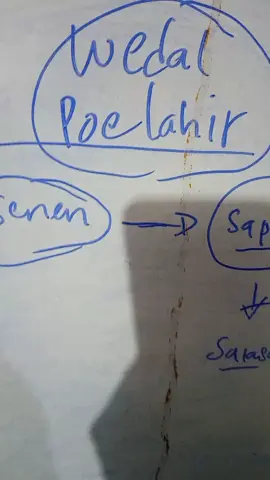 Wedal
Poelahir
Senen
Sap
Saras